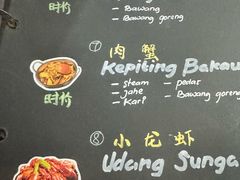 – Bawang
– Bawang goreng
时价
⑦ 肉蟹
Kepiting Bakau
– steam – pedas
– jahe – Bawang goreng
– Kari
时价
⑧ 小龙虾
Udang Sunga